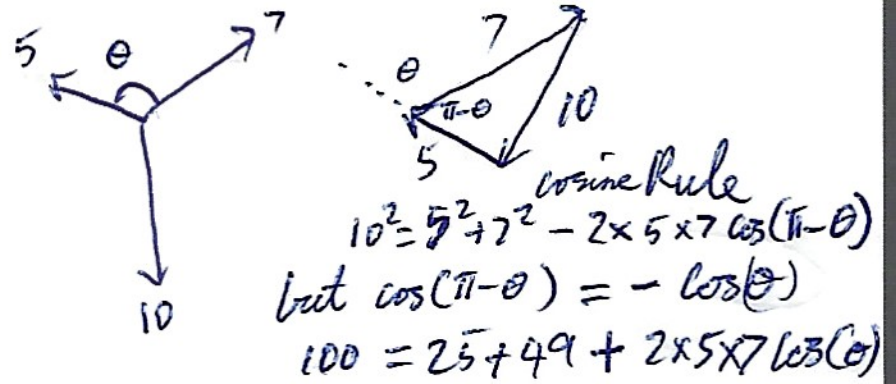 5 θ 7
10
7
θ
π-θ
10
5
cosine Rule
10² = 5² + 7² - 2×5×7 cos(π-θ)
but cos(π-θ) = - cos(θ)
100 = 25 + 49 + 2×5×7 cos(θ)